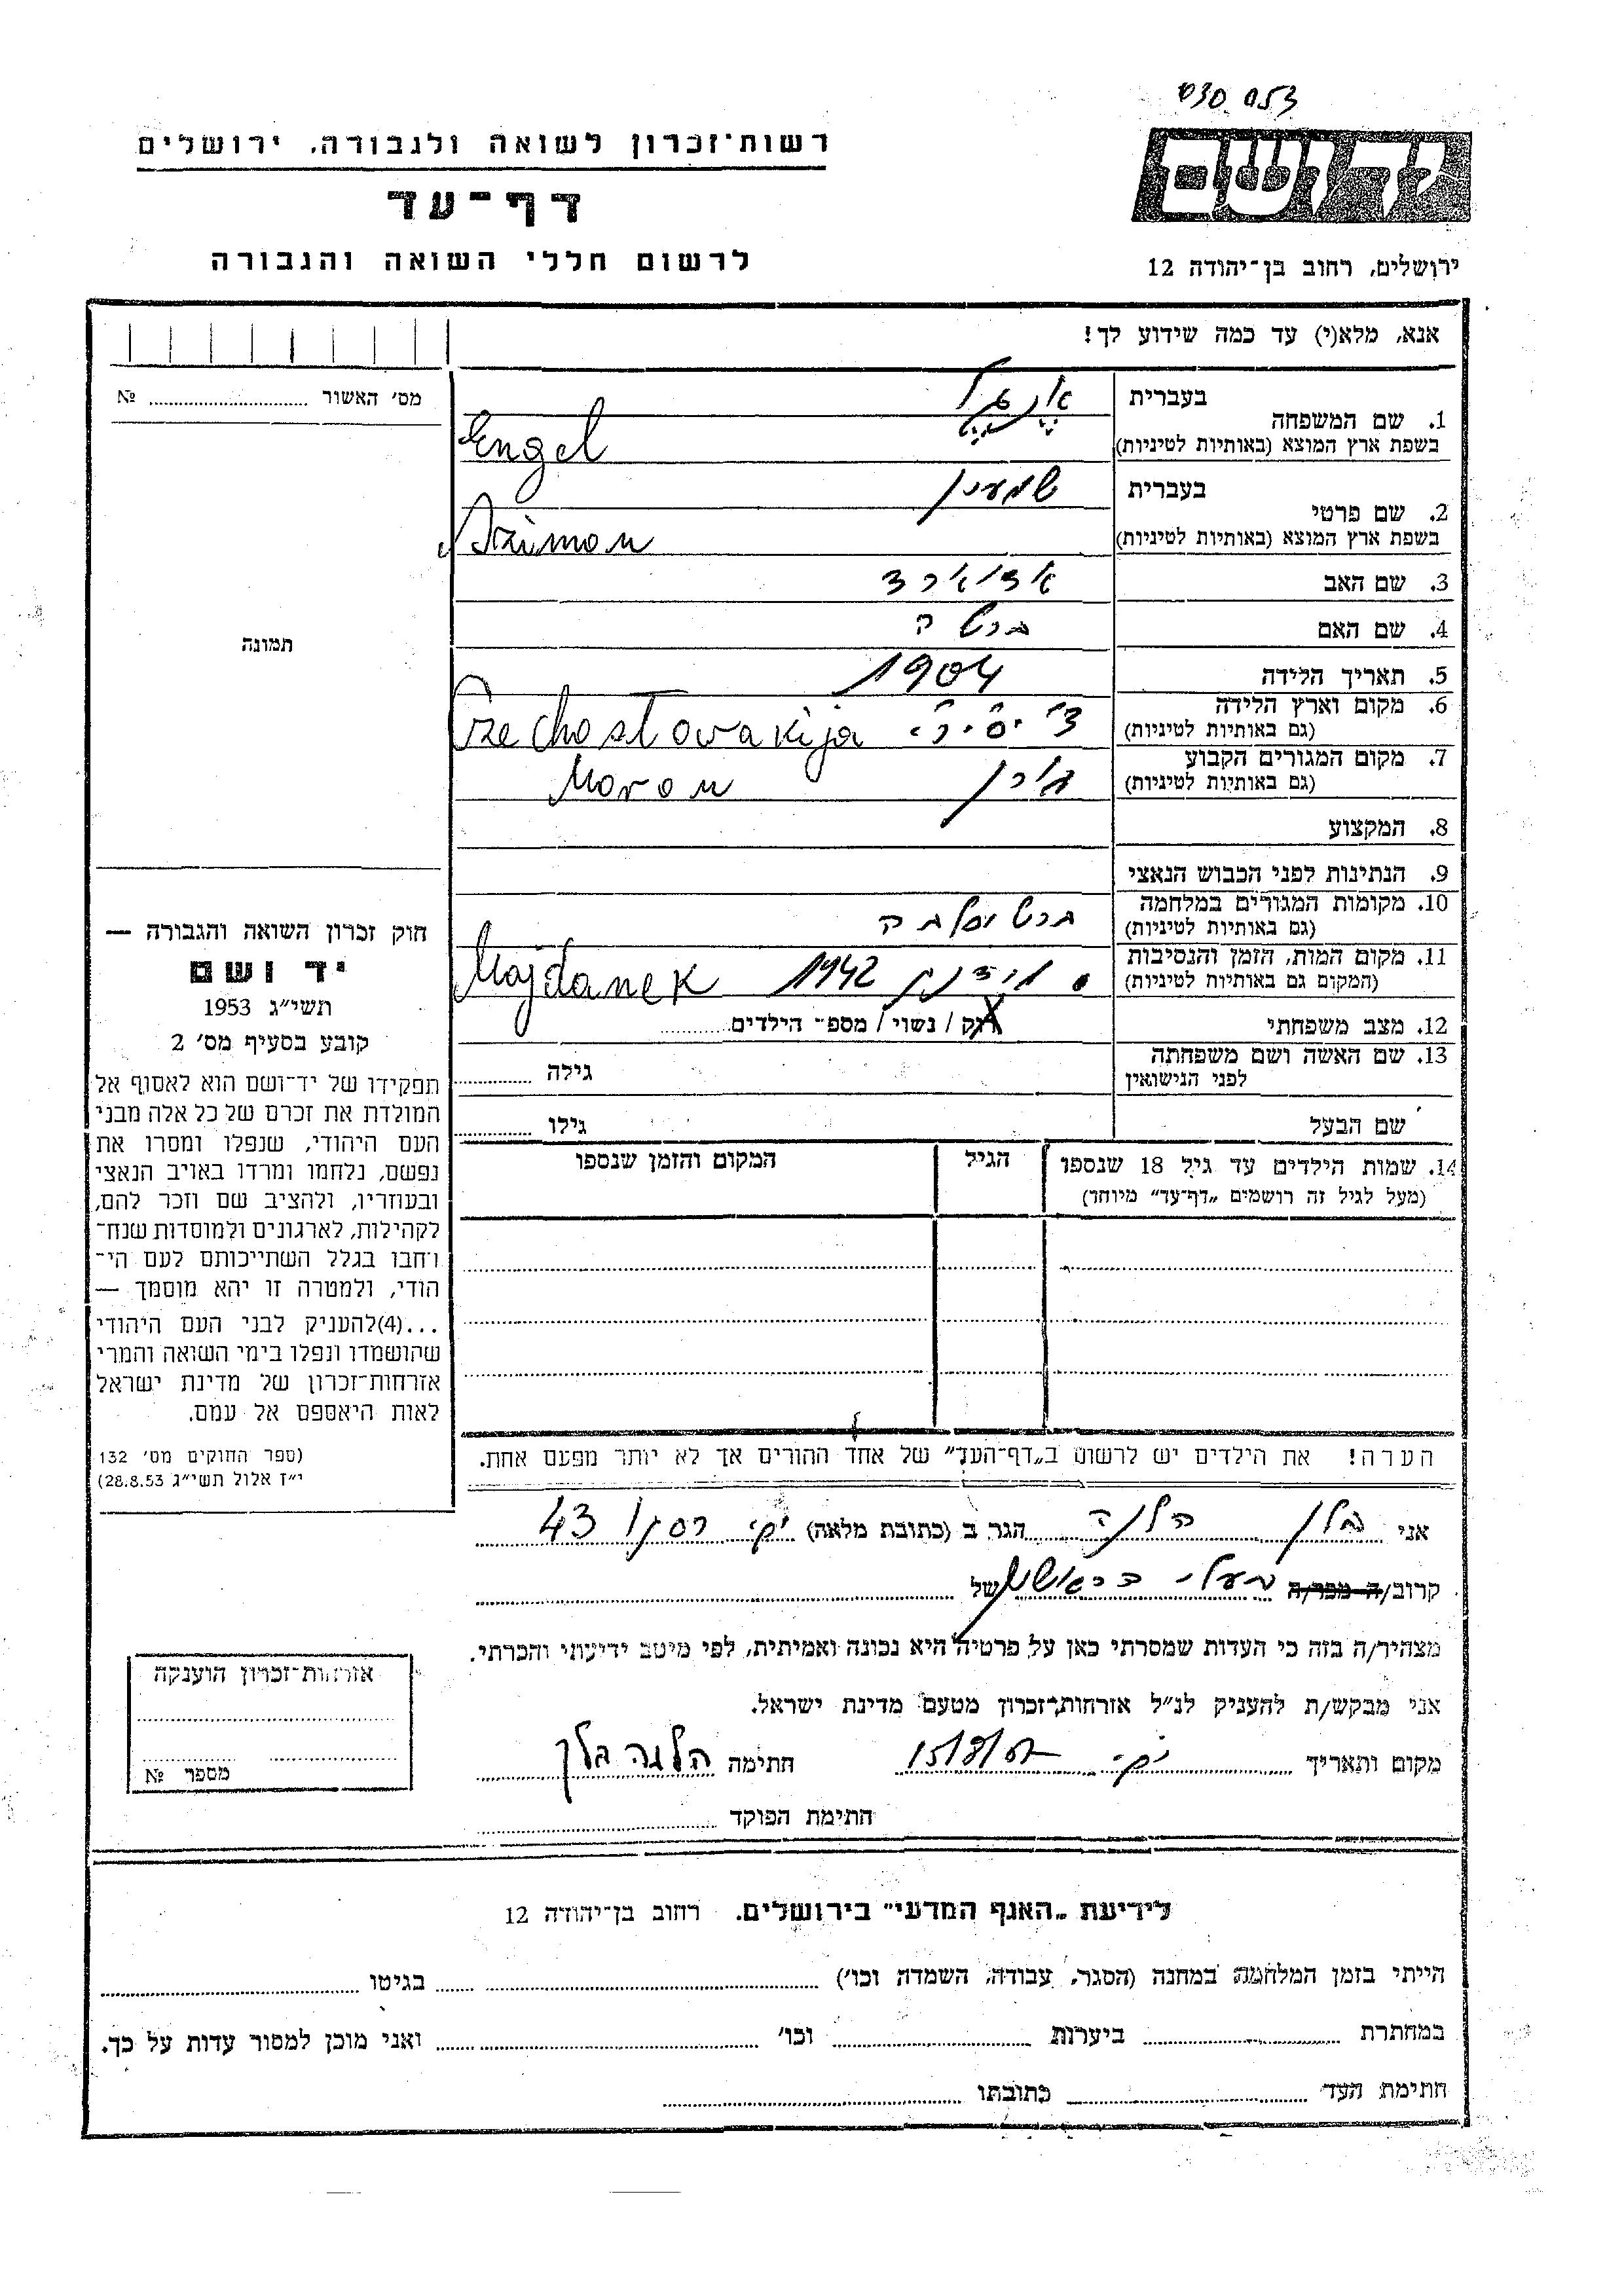 030 053
רשות־זכרון לשואה ולגבורה. ירושלים
דף־עד
לרשום חללי השואה והגבורה
יד ושם
ירושלים, רחוב בן־יהודה 12
אנא, מלא(י) עד כמה שידוע לך!
מס׳ האשור № 
1. שם המשפחה
בעברית
בשפת ארץ המוצא (באותיות לטיניות)
Engel
2. שם פרטי
בעברית שמעון
בשפת ארץ המוצא (באותיות לטיניות)
3. שם האב
4. שם האם ברטה
5. תאריך הלידה 1904
6. מקום וארץ הלידה
(גם באותיות לטיניות)
7. מקום המגורים הקבוע
(גם באותיות לטיניות) Moron
8. המקצוע
9. הנתינות לפני הכבוש הנאצי
10. מקומות המגורים במלחמה
(גם באותיות לטיניות) ברטיסלבה
11. מקום המות, הזמן והנסיבות
(המקום גם באותיות לטיניות) 1942 Majdanek
12. מצב משפחתי רוק / נשוי / מספ־ הילדים
13. שם האשה ושם משפחתה
לפני הנישואין
גילה
שם הבעל
גילו
14. שמות הילדים עד גיל 18 שנספו
(מעל לגיל זה רושמים „דף־עד״ מיוחד)
הגיל
המקום והזמן שנספו
תמונה
חוק זכרון השואה והגבורה —
יד ושם
תשי״ג 1953
קובע בסעיף מס׳ 2
תפקידו של יד־ושם הוא לאסוף אל
המולדת את זכרם של כל אלה מבני
העם היהודי, שנפלו ומסרו את
נפשם, נלחמו ומרדו באויב הנאצי
ובעוזריו, ולהציב שם וזכר להם,
לקהילות, לארגונים ולמוסדות שנח־
רחבו בגלל השתייכותם לעם הי־
הודי, ולמטרה זו יהא מוסמך —
...(4)להעניק לבני העם היהודי
שהושמדו ונפלו בימי השואה והמרי
אזרחות־זכרון של מדינת ישראל
לאות היאספם אל עמם.
(ספר החוקים מס׳ 132
י״ז אלול תשי״ג 28.8.53)
הערה! את הילדים יש לרשום ב„דף־העד״ של אחד ההורים אך לא יותר מפעם אחת.
אני הלנה הגר ב (כתובת מלאה) 43
קרוב/ה מכר/ה של
מצהיר/ה בזה כי העדות שמסרתי כאן על פרטיה היא נכונה ואמיתית, לפי מיטב ידיעותי והכרתי.
אני מבקש/ת להעניק לנ״ל אזרחות־זכרון מטעם מדינת ישראל.
מקום ותאריך חתימה הלנה
חתימת הפוקד
אזרחות־זכרון הוענקה
מספר №
לידיעת „האגף המדעי״ בירושלים. רחוב בן־יהודה 12
הייתי בזמן המלחמה במחנה (הסגר, עבודה, השמדה וכו׳) בגיטו
במחתרת ביערות וכו׳ ואני מוכן למסור עדות על כך.
חתימת העד כתובתו